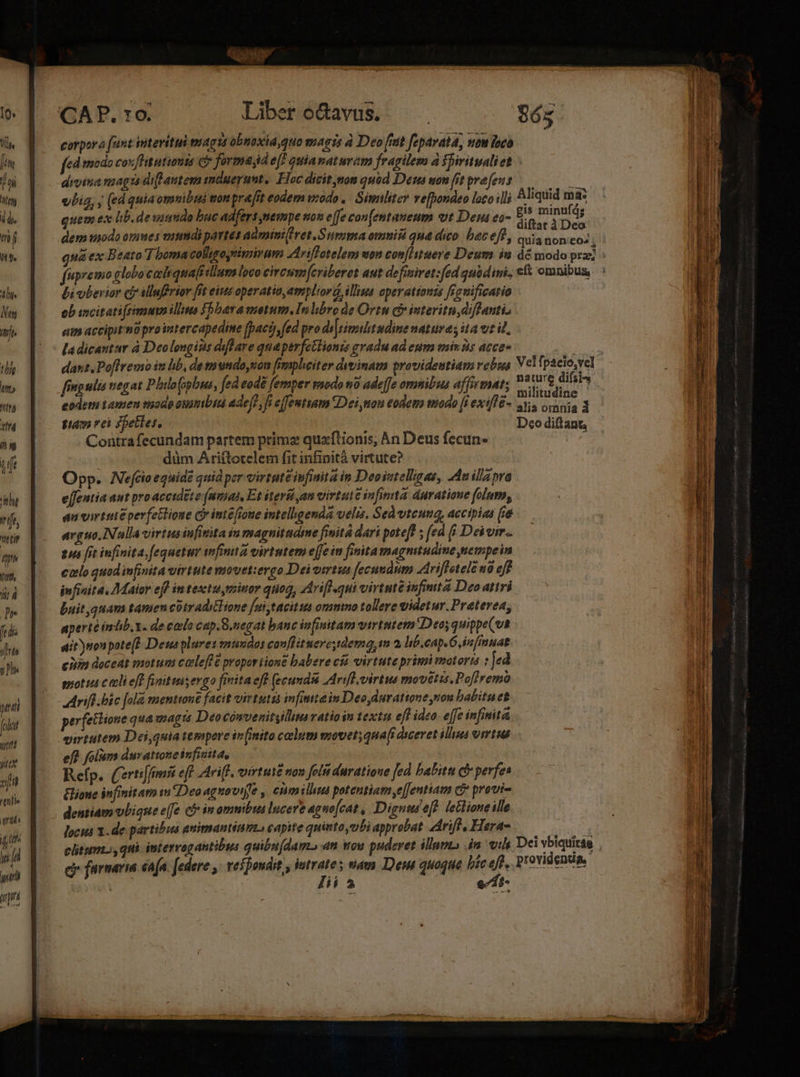 CAP. 10. Liber octavus. 865
corpora sunt interitui magis obnoxia, quo magis à Deo sint separata, non loco
sed modo constitutionis & forma, id est quia naturam fragilem à spirituali et
divina magis distantem induerunt. Hoc dicit, non quòd Deus non sit praesens
ubiq; , sed quia omnibus non praesit eodem modo. Similiter respondeo loco illi
quem ex lib. de mundo huc adfers, nempe non esse consentaneum ut Deus eo-
dem modo omnes mundi partes administret. Summa omnia quae dico haec est,
quâ ex Beato Thoma colligo, nimirum Aristotelem non constituere Deum in
supremo globo caeli quasi illum loco circumscriberet aut definiret: sed quòd ini,
bi uberior & illustrior sit eius operatio, amplior q; illius operationis significatio
ob incitatissimum illius sphaerae motum. In libro de Ortu & interitu, distantia
am accipit nō pro intercapedine spacij, sed pro dissimilitudine naturae; ita ut il,
la dicantur à Deo longiùs distare quae perfectionis gradu ad eum minùs acce-
dant. Postremo in lib. de mundo, non simpliciter divinam providentiam rebus
singulis negat Philosophus, sed eodē semper modo nō adesse omnibus affirmat;
eodem tamen modo omnibus adest, si essentiam Dei, non eodem modo si existē-
tiam rei spectes.
Contra secundam partem primae quaestionis, An Deus secun-
dùm Aristotelem sit infinitâ virtute?
Opp. Nescio equidē quid per virtutē infinitā in Deo intelligas, An illā pra
essentia aut pro accidēte sumas, Et iterū, an virtutē infinitā duratione solùm,
an virtutē perfectione & intēsione intelligendā velis. Sed utcunq; accipias sic
arguo. Nulla virtus infinita in magnitudine finitâ dari potest; sed si Dei vir-
tus sit infinita, sequetur infinitā virtutem esse in finita magnitudine, nempe in
caelo quod infinita virtute movet: ergo Dei virtus secundùm Aristotelē nō est
infinita. Maior est in textu, minor quoq; Arist. qui virtutē infinitā Deo attri
buit, quam tamen cōtradictione sui, tacitus omnino tollere videtur. Praeterea,
apertè in lib. 1. de caelo cap. 8. negat hanc infinitam virtutem Deo; quippe (ut
ait) non potest Deus plures mundos constituere, idemq; in 2. lib. cap. 6. insinuat
cùm doceat motum caelestē proportionē habere cū virtute primi motoris: sed
motus caeli est finitus, ergo finita est secundū Arist. virtus movētis. Postremò
Arist. hîc solā mentionē facit virtutis infinitae in Deo, duratione, non habitu et
perfectione qua magis Deo convenit, illius ratio in textu est ideo esse infinitā
virtutem Dei, quia tempore infinito caelum movet; quasi diceret illius virtus
est solùm duratione infinita.
Resp. Certissimū est Arist. virtutē non solū duratione sed habitu & perfe-
ctione infinitam in Deo agnovisse, cùm illius potentiam, essentiam & provi-
dentiam ubique esse & in omnibus lucere agnoscat, Dignus est lectione ille
locus 1. de partibus animantium capite quinto, ubi approbat Arist. Hera-
clitum, qui interrogantibus quibusdam an non puderet illum in vili
& furnaria casa sedere, respondit, intrate; nam Deus quoque hîc est,
Iii 2
Aliquid ma-
gis minusq;
distat à Deo
quia non eo-
dē modo prae-
est omnibus,
Vel spacio, vel
naturę dissi-
militudine
alia omnia à
Deo distant,
Dei ubiquitas
providentia,